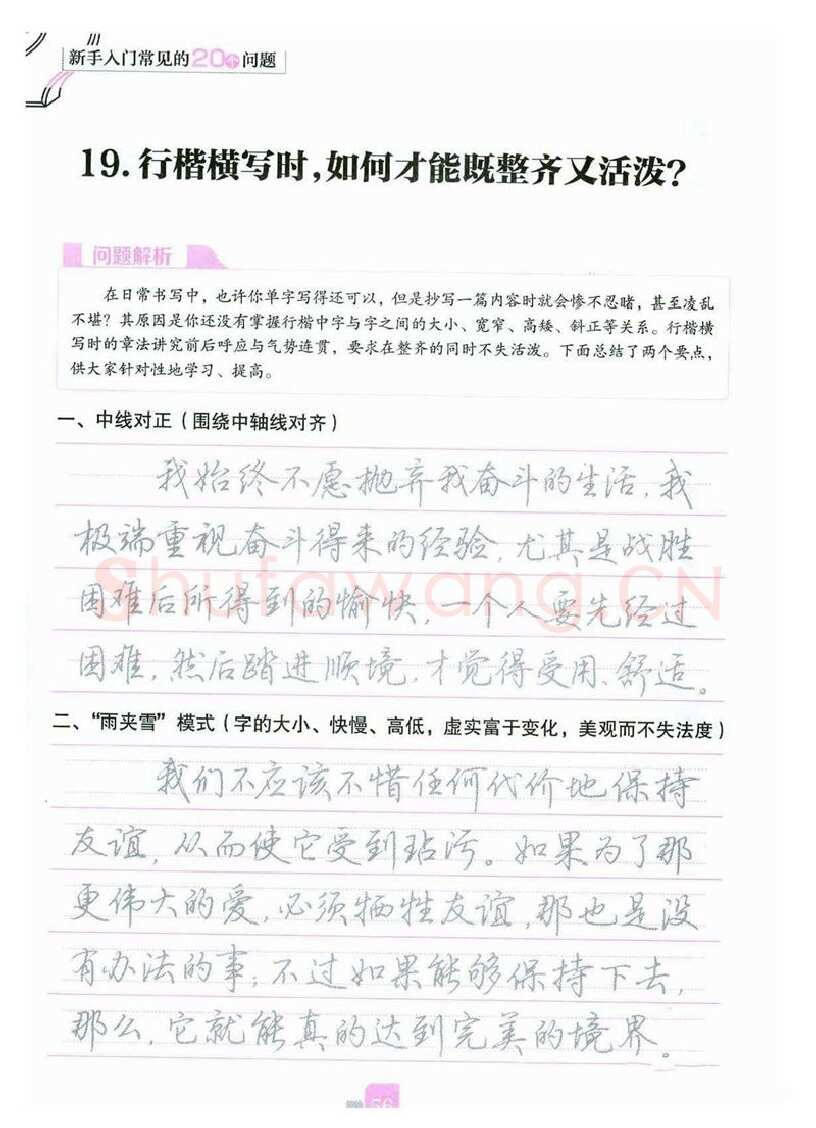 新手入门常见的20个问题
19.行楷横写时,如何才能既整齐又活泼?
问题解析
在日常书写中，也许你单字写得还可以，但是抄写一篇内容时就会惨不忍睹，甚至凌乱
不堪？其原因是你还没有掌握行楷中字与字之间的大小、宽窄、高矮、斜正等关系。行楷横
写时的章法讲究前后呼应与气势连贯，要求在整齐的同时不失活泼。下面总结了两个要点，
供大家针对性地学习、提高。
一、中线对正（围绕中轴线对齐）
我始终不愿抛弃我奋斗的生活，我
极端重视奋斗得来的经验，尤其是战胜
困难后所得到的愉快，一个人要先经过
困难，然后踏进顺境，才觉得受用、舒适。
shufawang.CN
二、“雨夹雪”模式（字的大小、快慢、高低，虚实富于变化，美观而不失法度）
我们不应该不惜任何代价地保持
友谊，从而使它受到玷污。如果为了那
更伟大的爱，必须牺牲友谊，那也是没
有办法的事；不过如果能够保持下去，
那么，它就能真的达到完美的境界。
56